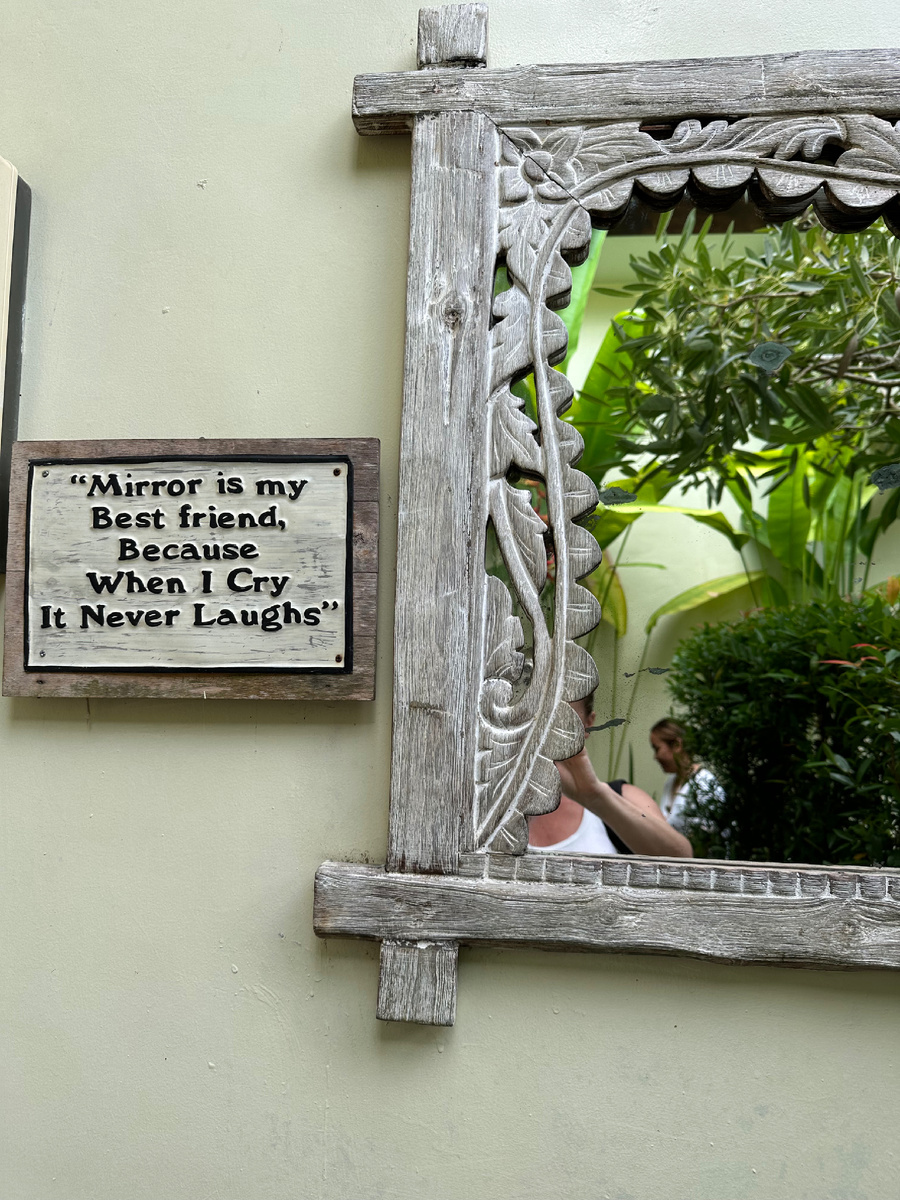 “Mirror is my
Best friend,
Because
When I Cry
It Never Laughs”